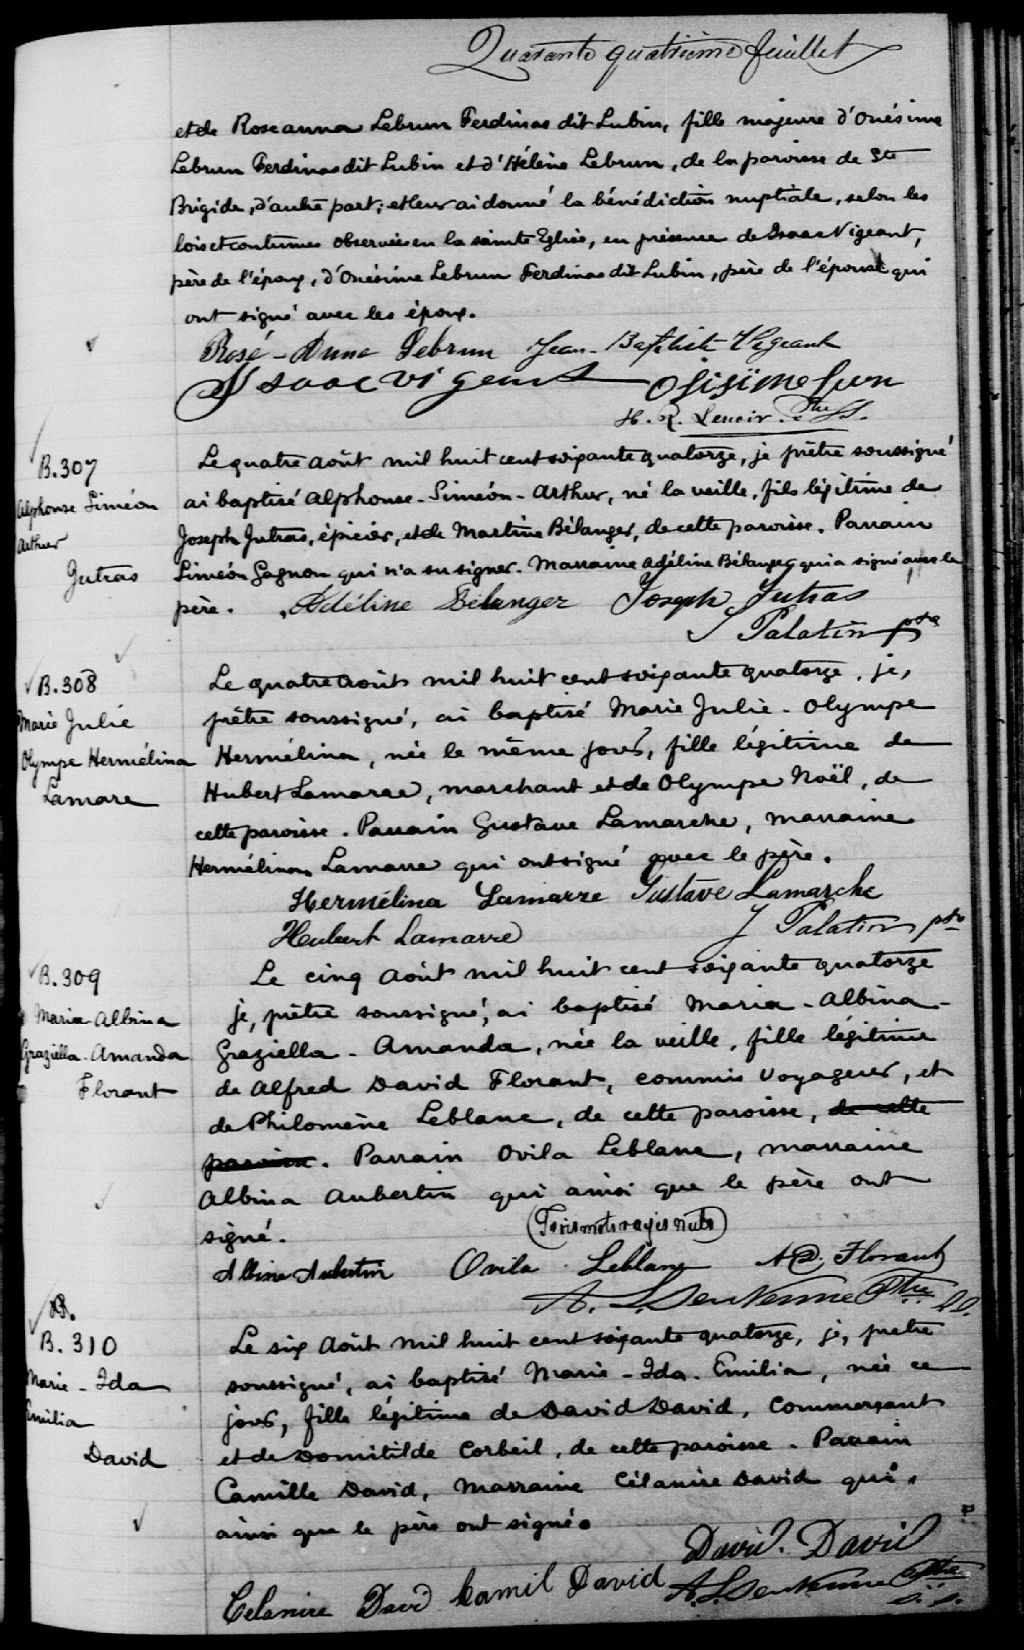 Quarante quatrième feuillet
et de Roseanna Lebrun Ferdinas dit Lubin, fille majeure d'Onésime
Lebrun Ferdinas dit Lubin et d'Hélène Lebrun, de la paroisse de Ste
Brigide, d'autre part; et leur ai donné la bénédiction nuptiale, selon les
lois et coutumes observées en la sainte Eglise, en présence de Isaac Vigeant,
père de l'époux, d'Onésime Lebrun Ferdinas dit Lubin, père de l'épouse qui
ont signé avec les époux.
Rosé-Anna Lebrun Jean-Baptiste Vigeant
Isaac vigeant
H. R. Lenoir. Ptre SS.
B.307
Alphonse Siméon
Arthur
Jutras
Le quatre août mil huit cent soixante quatorze, je prêtre soussigné
ai baptisé Alphonse-Siméon-Arthur, né la veille, fils légitime de
Joseph Jutras, épicier, et de Martine Bélanger, de cette paroisse. Parrain
Siméon Gagnon qui n'a su signer. Marraine Adéline Bélanger qui a signé avec le
père. Adéline Bélanger Joseph Jutras
J Palatin ptre
B.308
Marie Julie
Olympe Hermélina
Lamare
Le quatre août mil huit cent soixante quatorze, je,
prêtre soussigné, ai baptisé Marie Julie-Olympe
Hermélina, née le même jour, fille légitime de
Hubert Lamarre, marchant et de Olympe Noël, de
cette paroisse. Parrain Gustave Lamarche, marraine
Hermélina Lamarre qui ont signé avec le père.
Hermélina Lamarre Gustave Lamarche
Hubert Lamarre J Palatin ptre
B.309
Maria Albina
Graziella-Amanda
Florant
Le cinq août mil huit cent soixante quatorze
je, prêtre soussigné, ai baptisé Maria-Albina-
Graziella-Amanda, née la veille, fille légitime
de Alfred David Florant, commis voyageur, et
de Philomène Leblanc, de cette paroisse, de cette
paroisse. Parrain Ovila Leblanc, marraine
Albina Aubertin qui ainsi que le père ont
signé. (Trois mots rayés nuls)
Albina Aubertin Ovila Leblanc A D. Florant
B.
B.310
Marie-Ida
Emilia
David
Le six août mil huit cent soixante quatorze, je, prêtre
soussigné, ai baptisé Marie-Ida-Emilia, née ce
jour, fille légitime de David David, Commerçant
et de Domitilde Corbeil, de cette paroisse. Parrain
Camille David, Marraine Célanire David qui,
ainsi que le père ont signé.
David. David
Celanire David Camil David